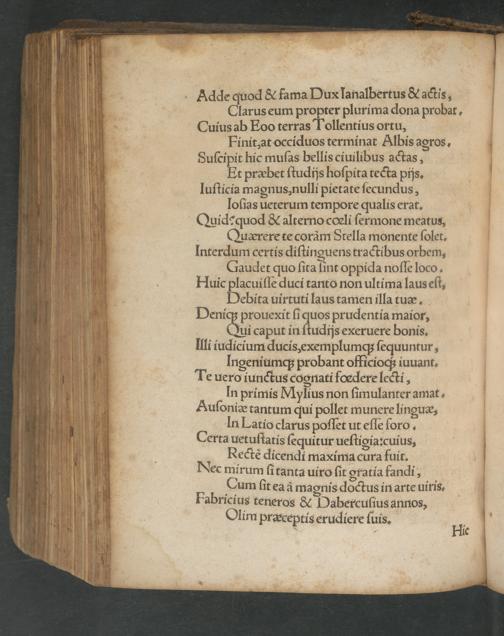 Adde quod & fama Dux Ianalbertus & actis,
Clarus eum propter plurima dona probat.
Cuius ab Eoo terras Tollentius ortu,
Finit, at occiduos terminat Albis agros.
Suscipit hic musas bellis ciuilibus actas,
Et præbet studijs hospita tecta pijs.
Iusticia magnus, nulli pietate secundus,
Iosias ueterum tempore qualis erat.
Quid? quod & alterno cœli sermone meatus,
Quærere te coràm Stella monente solet.
Interdum certis distinguens tractibus orbem,
Gaudet quo sita sint oppida nosse loco.
Huic placuisse duci tanto non ultima laus est,
Debita uirtuti laus tamen illa tuæ.
Deniqꝫ prouexit si quos prudentia maior,
Qui caput in studijs exeruere bonis.
Illi iudicium ducis, exemplumqꝫ sequuntur,
Ingeniumqꝫ probant officioqꝫ iuuant.
Te uero iunctus cognati fœdere lecti,
In primis Mylius non simulanter amat.
Ausoniæ tantum qui pollet munere linguæ,
In Latio clarus posset ut esse foro.
Certa uetustatis sequitur uestigia: cuius,
Rectè dicendi maxima cura fuit.
Nec mirum si tanta uiro sit gratia fandi,
Cum sit ea à magnis doctus in arte uiris.
Fabricius teneros & Dabercusius annos,
Olim præceptis erudiere suis.
Hic